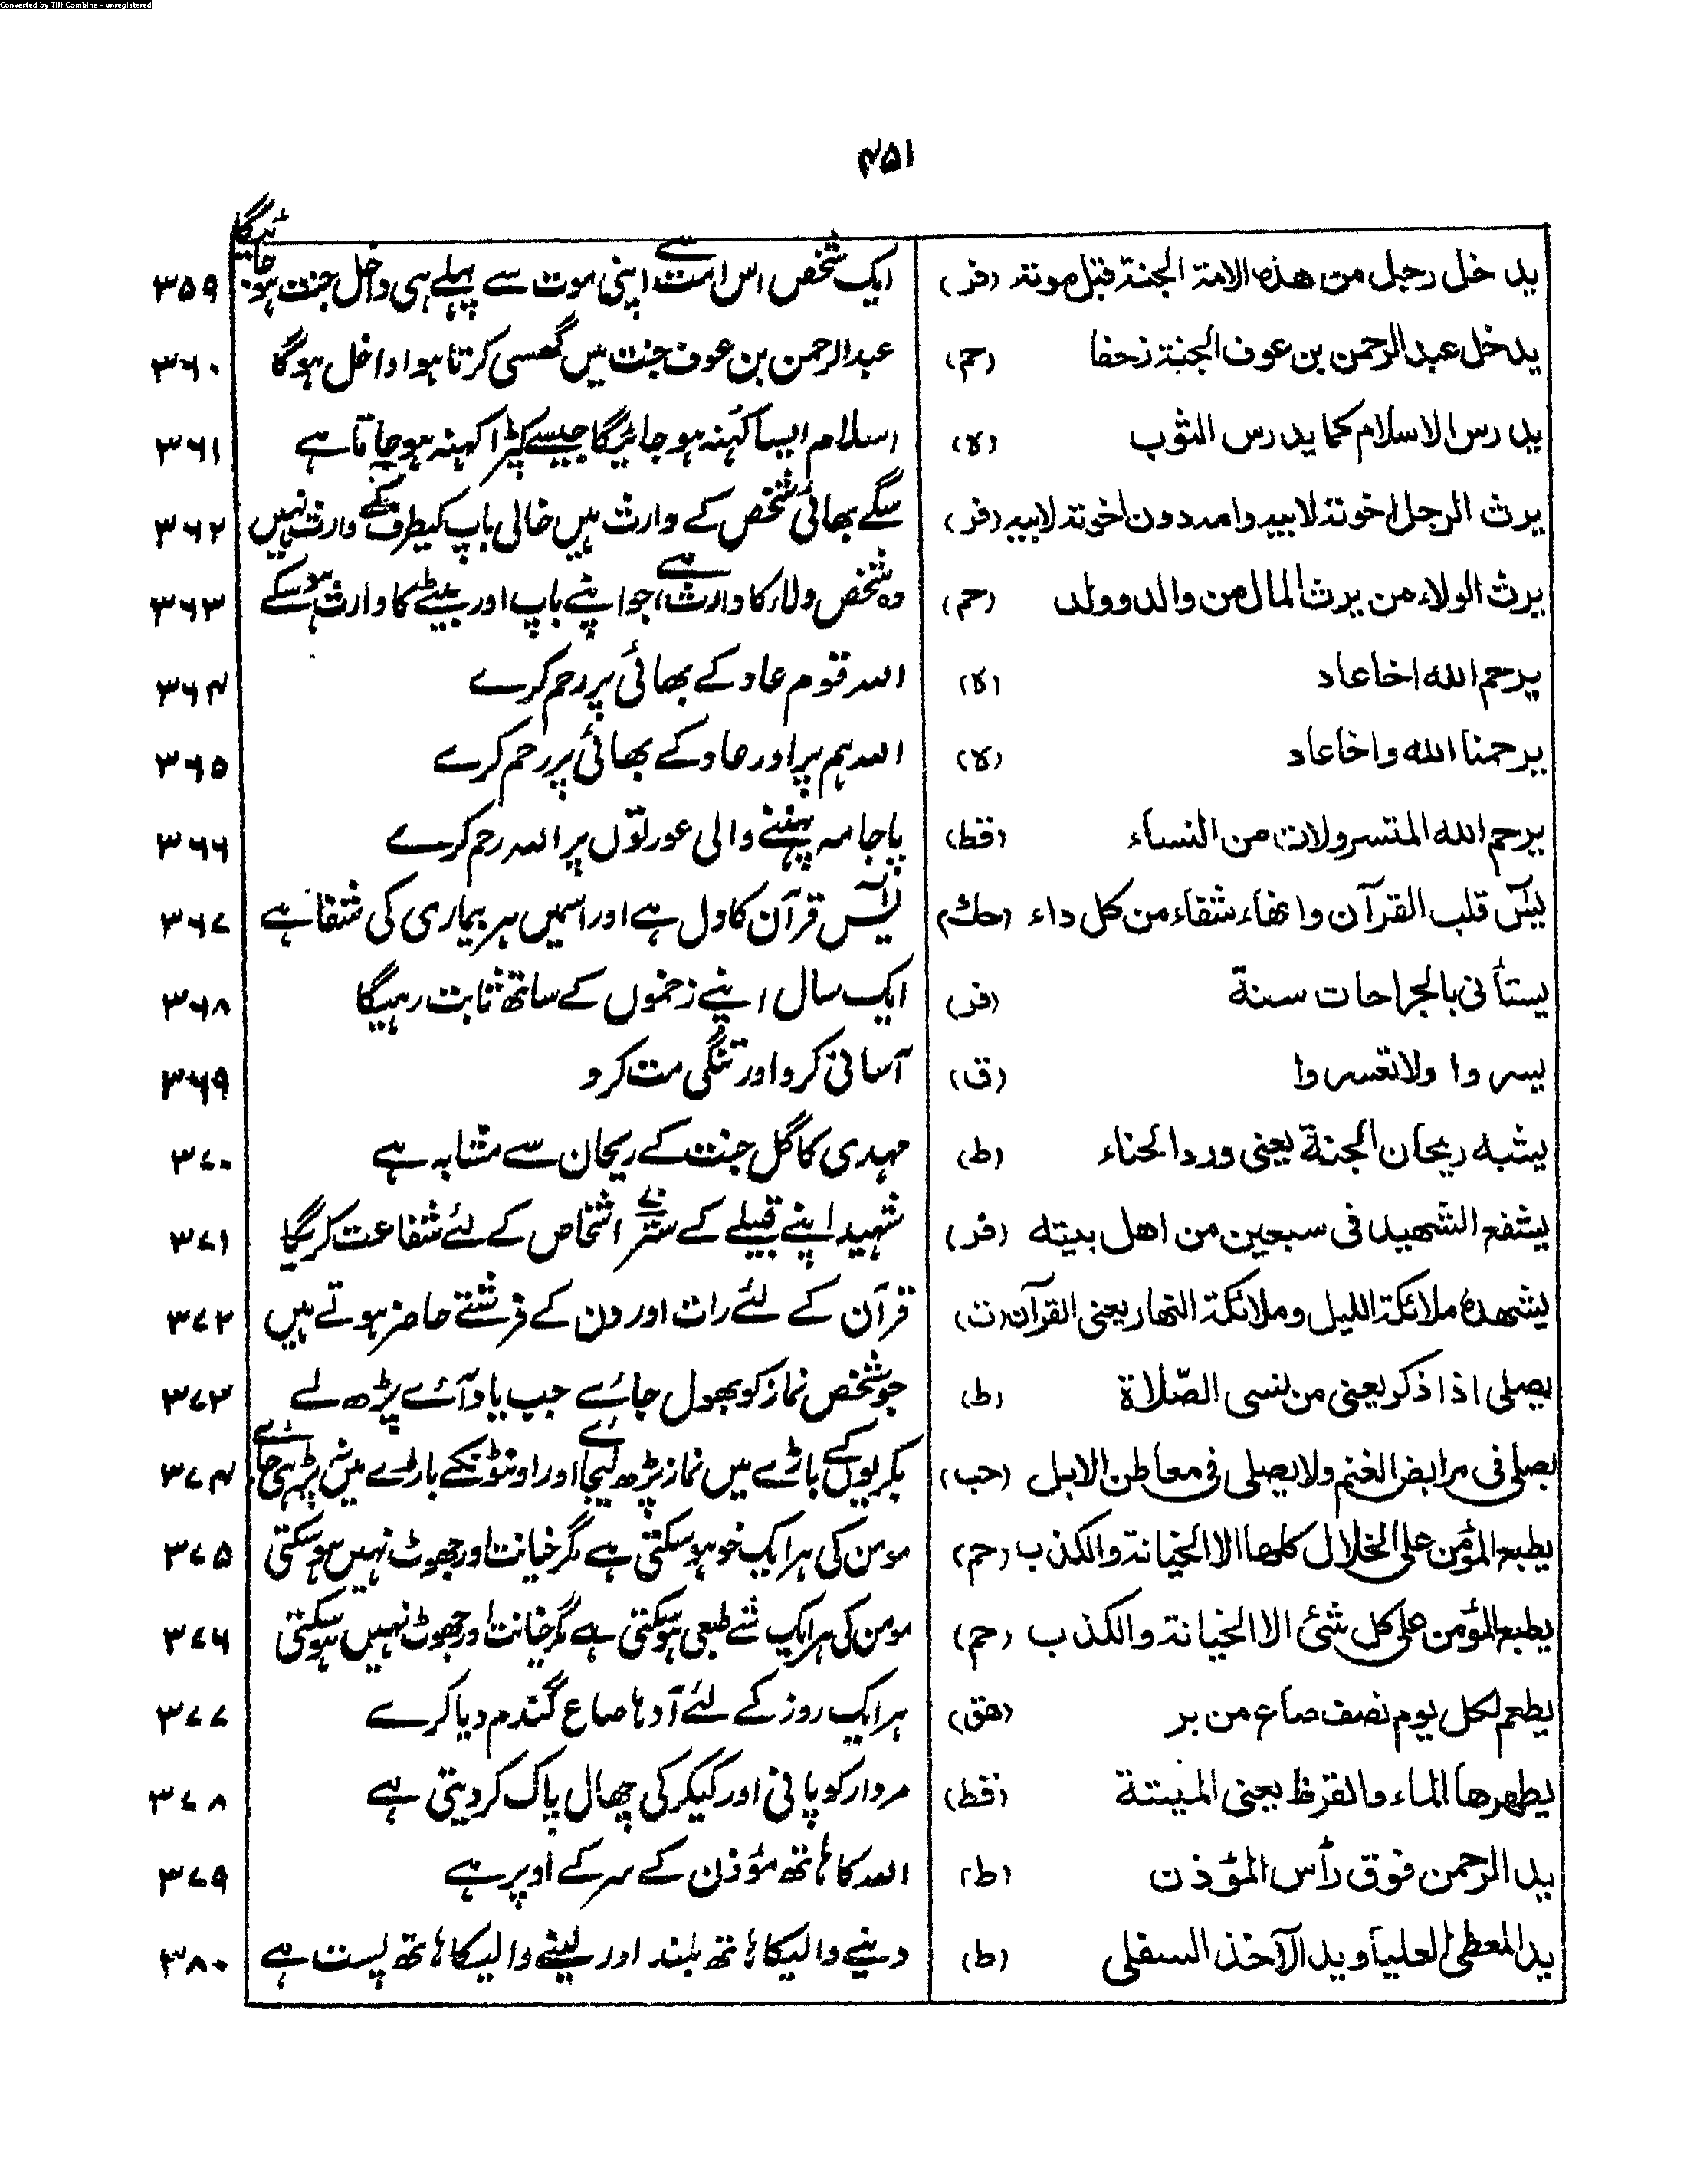 Converted by Tiff Combine - unregistered
۴۵۱
يدخل رجل من هذه الامة الجنة قبل موته (فر) ایک شخص اس امت سے اپنی موت سے پہلے ہی داخل جنت ہو جائیگا ۳۵۹
يدخل عبد الرحمن بن عوف الجنة زحفا (حم) عبد الرحمن بن عوف جنت میں گھسی کرتا ہوا داخل ہوگا ۳۶۰
يدرس الاسلام كما يدرس الثوب (ه) اسلام ایسا کہنہ ہو جائیگا جیسے کپڑا کہنہ ہو جاتا ہے ۳۶۱
يرث الرجل اخوته لابيه وامه دون اخوته لابيه (فر) سگے بھائی شخص کے وارث ہیں خالی باپ کیطرف کے وارث نہیں ۳۶۲
يرث الولاء من يرث المال من والد وولد (حم) وہ شخص ولاء کا وارث ہے جو اپنے باپ اور بیٹے کا وارث ہو سکے ۳۶۳
يرحم الله اخا عاد (ه) اللہ قوم عاد کے بھائی پر رحم کرے ۳۶۴
يرحمنا الله واخا عاد (ه) اللہ ہم پر اور عاد کے بھائی پر رحم کرے ۳۶۵
يرحم الله المتسرولات من النساء (قط) پاجامہ پہننے والی عورتوں پر اللہ رحم کرے ۳۶۶
يٰسٓ قلب القرآن وانهاء شفاء من كل داء (حك) یٰسٓ قرآن کا دل ہے اور اسمیں ہر بیماری کی شفا ہے ۳۶۷
يستأنى بالجراحات سنة (فر) ایک سال اپنے زخموں کے ساتھ ثابت رہیگا ۳۶۸
يسروا ولا تعسروا (ق) آسانی کرو اور تنگی مت کرو ۳۶۹
يشبه ريحان الجنة يعنى ورد الحناء (ط) مہدی کا گل جنت کے ریحان سے مشابہ ہے ۳۷۰
يشفع الشهيد فى سبعين من اهل بيته (فر) شہید اپنے قبیلے کے ستر ۷۰ اشخاص کے لئے شفاعت کریگا ۳۷۱
يشهده ملائكة الليل وملائكة النهار يعنى القرآن (ت) قرآن کے لئے رات اور دن کے فرشتے حاضر ہوتے ہیں ۳۷۲
يصلى اذا ذكر يعنى من نسى الصّلاة (ط) جو شخص نماز کو بھول جائے جب یاد آئے پڑھ لے ۳۷۳
يصلى فى مرابض الغنم ولا يصلى فى معاطن الابل (حب) بکریوں کے باڑے میں نماز پڑھ لیجائے اور اونٹونکے باڑے میں نہ پڑہی جائے ۳۷۴
يطبع المؤمن على الخلال كلها الا الخيانة والكذب (حم) مومن کی ہر ایک خو ہو سکتی ہے مگر خیانت اور جھوٹ نہیں ہو سکتی ۳۷۵
يطبع المؤمن على كل شئ الا الخيانة والكذب (حم) مومن کی ہر ایک شے طبعی ہو سکتی ہے مگر خیانت اور جھوٹ نہیں ہو سکتی ۳۷۶
يطعم لكل يوم نصف صاع من بر (هق) ہر ایک روز کے لئے آدہا صاع گندم دیا کرے ۳۷۷
يطهرها الماء والقرظ يعنى الميتة (قط) مردار کو پانی اور کیکر کی چھال پاک کر دیتی ہے ۳۷۸
يد الرحمن فوق رأس المؤذن (ط) اللہ کا ہاتھ مؤذن کے سر کے اوپر ہے ۳۷۹
يد المعطى العليا ويد الآخذ السفلى (ط) دینے والیکا ہاتھ بلند اور لینے والیکا ہاتھ پست ہے ۳۸۰